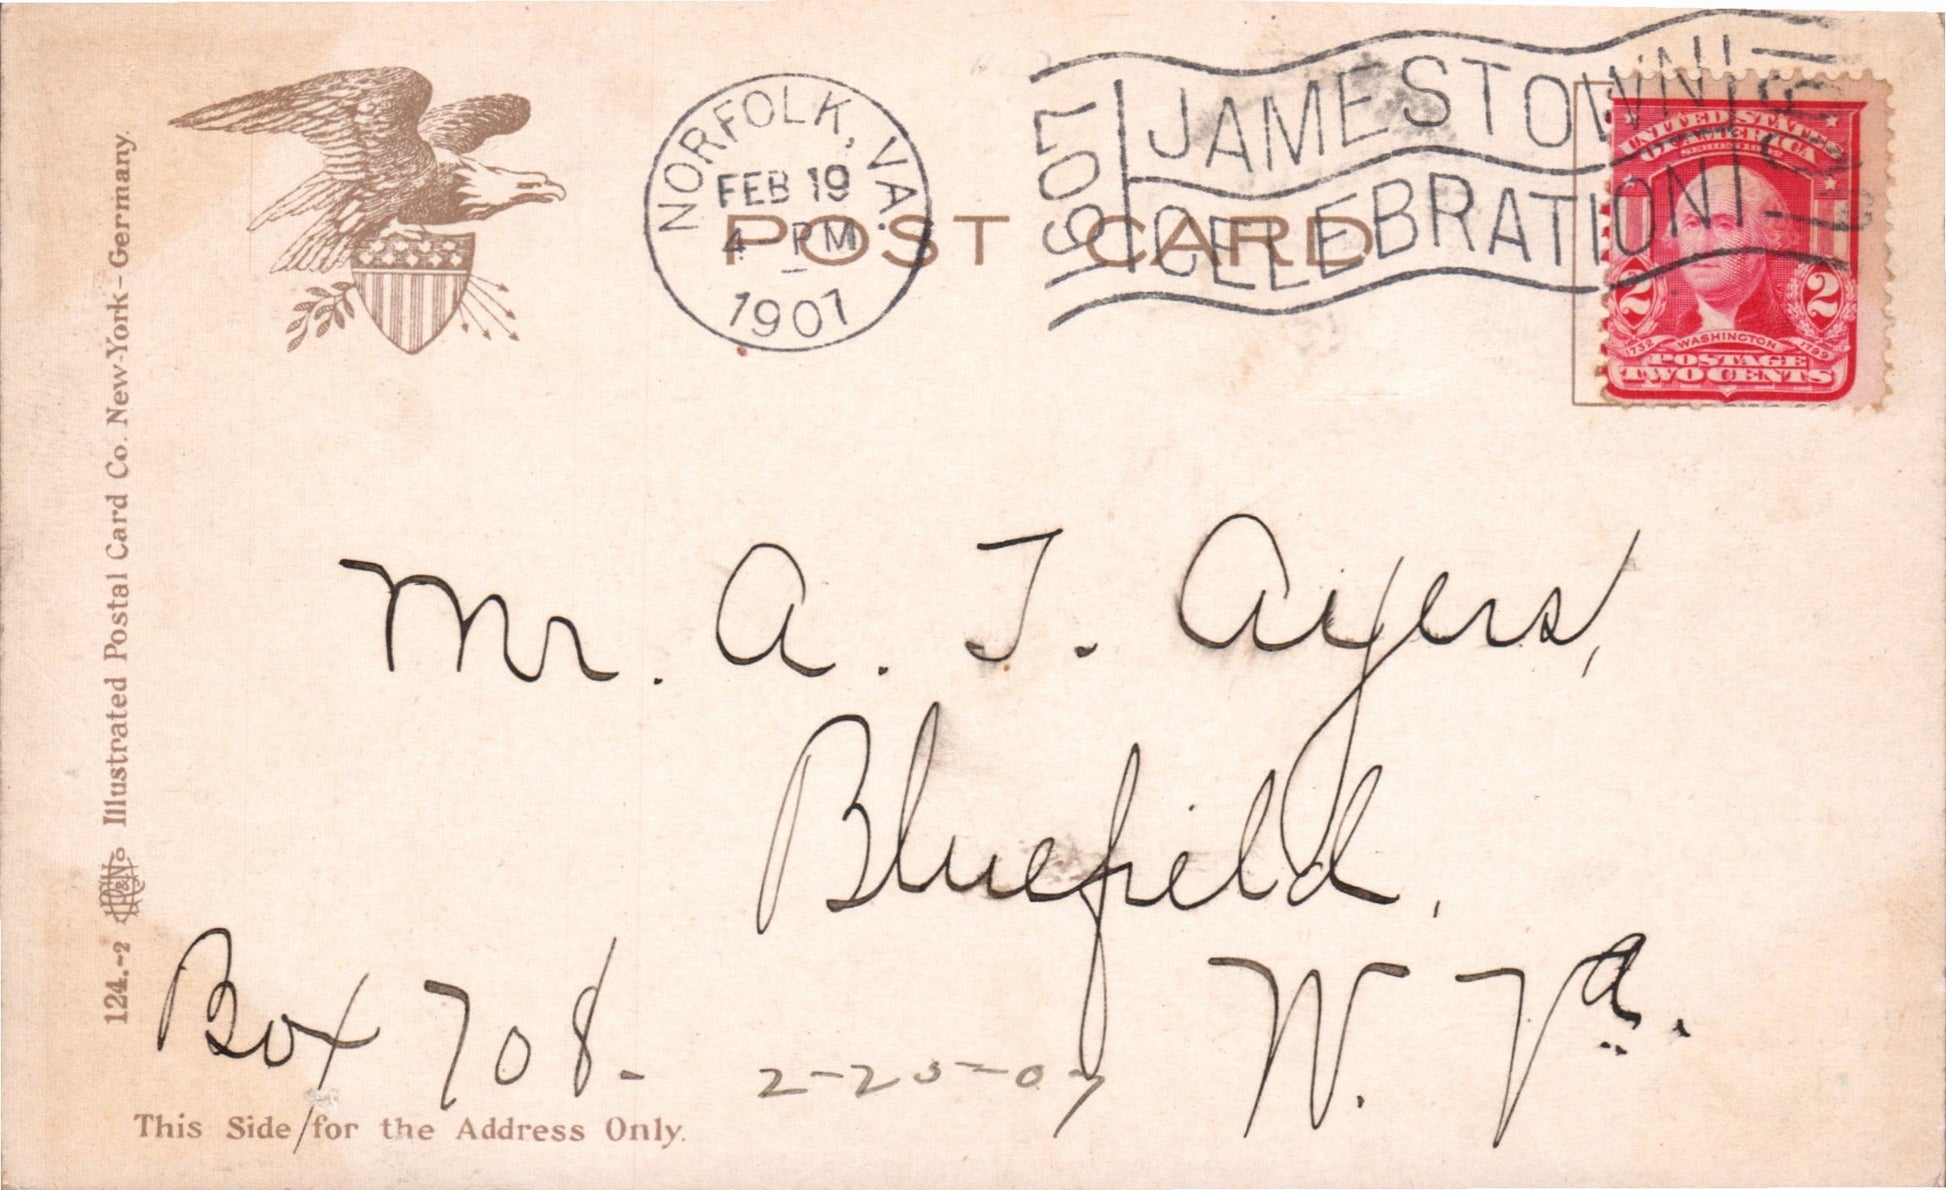 NORFOLK, VA.
FEB 19
4 - PM
1907
1907
JAMESTOWN
CELEBRATION
POST CARD
UNITED STATES
OF AMERICA
2 2
1732 WASHINGTON 1799
POSTAGE
TWO CENTS
Mr. A. T. Ayers,
Bluefield,
W. Va.
Box 708.
2-25-07
This Side for the Address Only.
124.-2 Illustrated Postal Card Co. New-York-Germany.